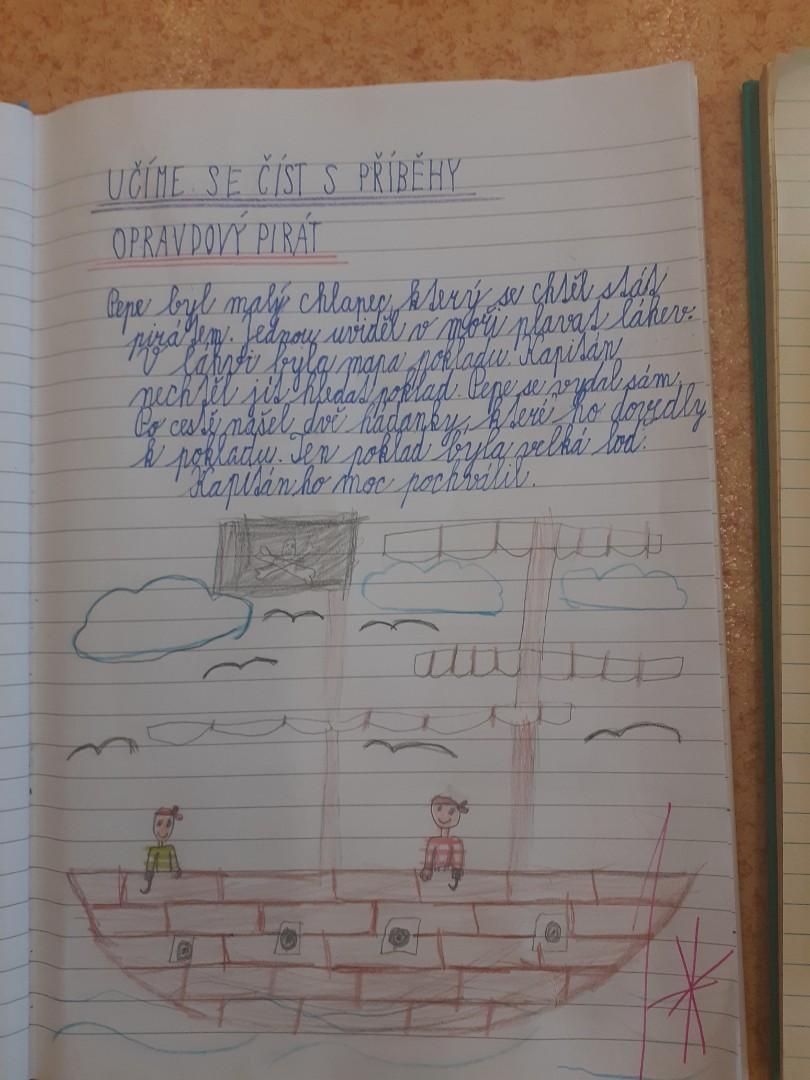 UČÍME SE ČÍST S PŘÍBĚHY
OPRAVDOVÝ PIRÁT
Pepe byl malý chlapec, který se chtěl stát
pirátem. Jednou uviděl v moři plavat láhev.
V láhvi byla mapa pokladu. Kapitán
nechtěl jít hledat poklad. Pepe se vydal sám.
Po cestě našel dvě hádanky, které ho dovedly
k pokladu. Ten poklad byla velká loď.
Kapitán ho moc pochválil.